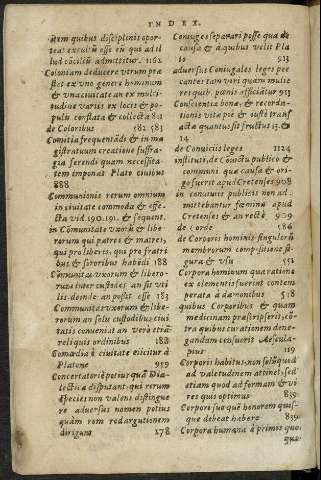 INDEX.
uirum quibus disciplinis opor-
teat excultũ esse eũ qui ad il
lud cõciliũ admittitur. 1162
Coloniam deducere utrum præ
stet ex uno genere hominum
& una ciuitate an ex multi-
tudine uariis ex locis & po-
pulis conflata & collecta 811
de Coloribus 582 583
Comitia frequentãda & in ma
gistratuum creatione suffra-
gia ferendi quam necessita-
tem imponat Plato ciuibus
888
Communionis rerum omnium
in ciuitate commoda & effe-
cta vid. 190.191. & sequent.
in Cõmunitate vxorũ & libe
rorum qui patres & matres,
qui pro liberis, qui pro fratri
bus & sororibus habẽdi 188
Cõmunitas vxorum & libero-
rum inter custodes an sit vti
lis deinde an possit esse 183
Communitas vxorum & libe-
rorum an solu custodibus ciui
tatis conueniat an verò etiã
reliquis ordinibus 188
Comœdia è ciuitate eiicitur à
Platone 919
Concertatoriè potius quã Dia-
lectica disputant qui rerum
species non valens distingue
re aduersus nomen potius
quàm rem redargutionem
dirigunt 278
Coniuges separari posse qua de
causa & à quibus velit Pla
to 913
aduersus Coniugales leges pec
cantes tam viri quàm mulie
res quib. pœnis afficiãtur 913
Conscientia bona, & recorda-
tionis vitæ piè & iustè trans
actæ quantus sit fructus 13. &
14
de Conuiciis leges 1124
instituti de Cõuictu publico &
communi quæ causa & ori-
go fuerit apud Cretenses 908
in conuiuiis publicis non ad-
mittebantur fœminæ apud
Cretenses & an rectè 909
de corde 586
de Corporis hominis singulorũ
membrorum compositione fi-
gura & vsu 551
Corpora hominum qua ratione
ex elementis fuerint contem
perata à dæmonibus 518
quibus Corporibus & quam
medicinam præscripserit, cõ-
tra quibus curationem dene-
gandam censuerit Aescula-
pius 119
Corporis habitus, non solũ quod
ad valetudinem attinet, sed
etiam quod ad formam & vi
res quis optimus 839
Corpore suo quẽ honorem quis-
que debeat habere 839
Corpora humana à primis quo-
que